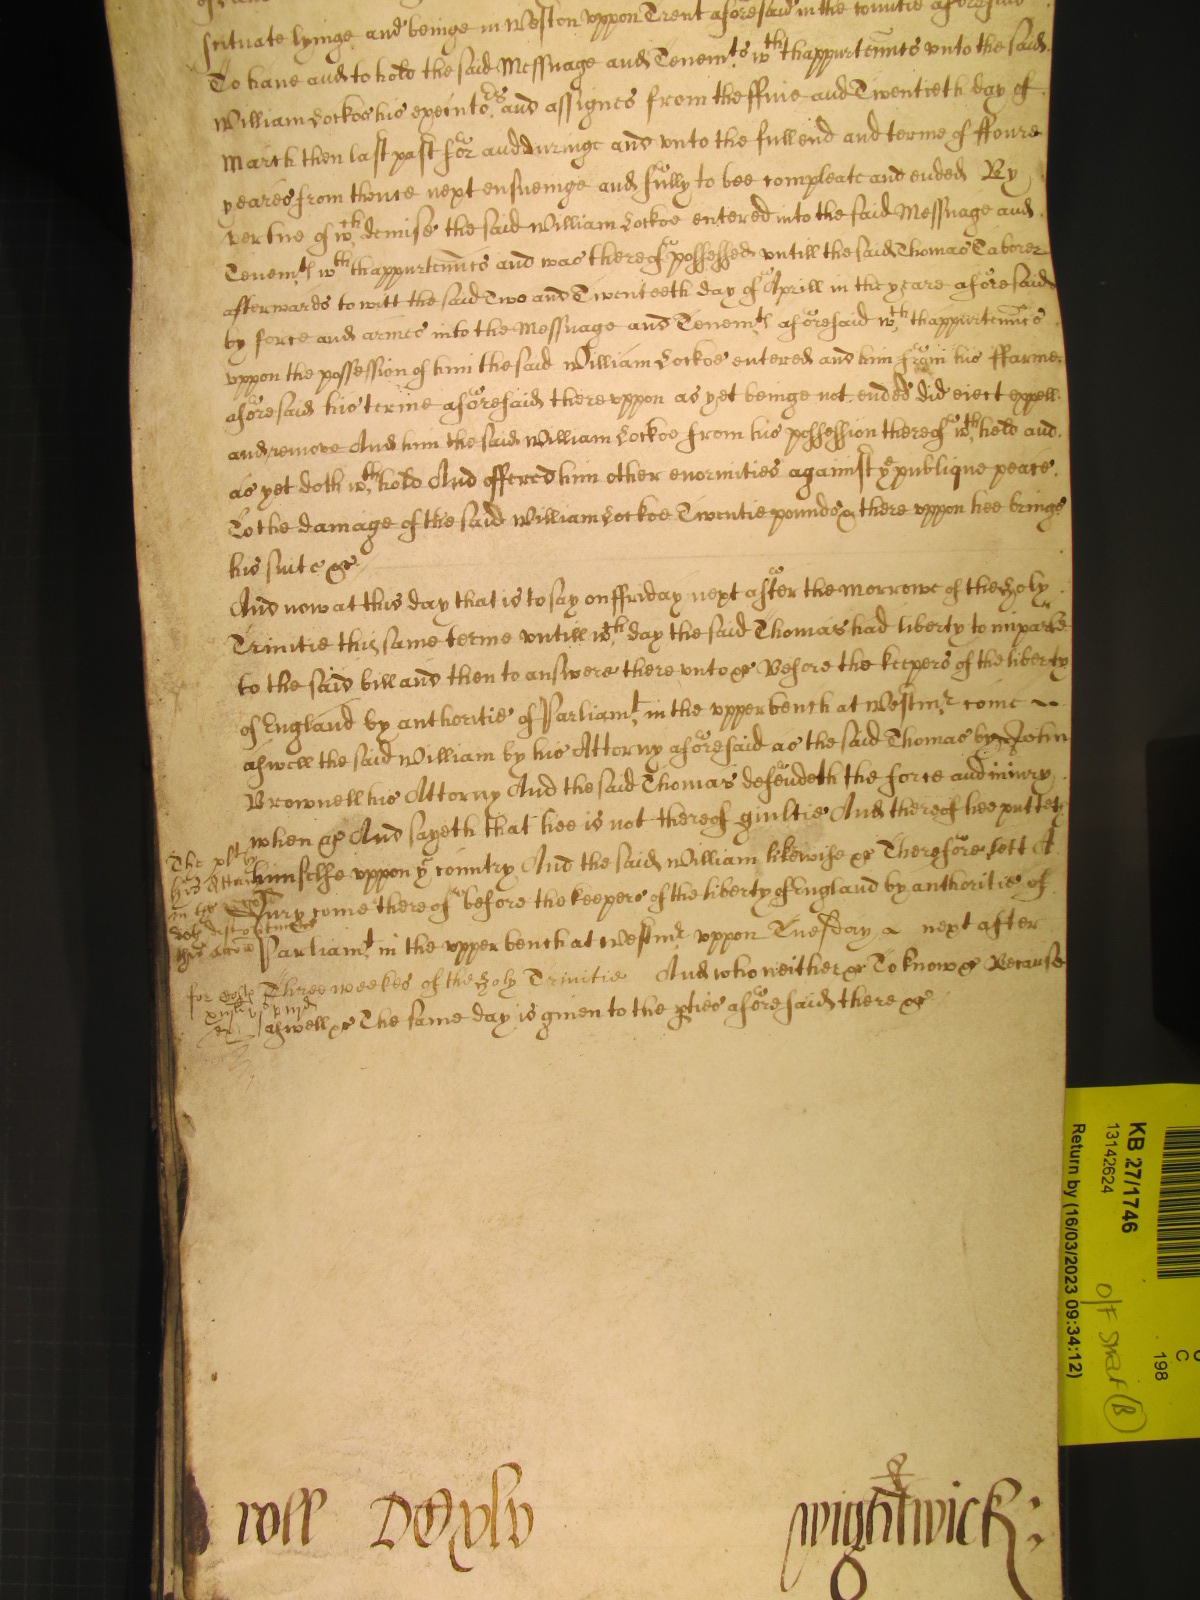 scituate lyinge and beinge in Weston vppon Trent aforesaid in the countie aforesaid
To haue and to hold the said Messuage and Tenem.ts w.th thappurtennces vnto the said
William Lockoe his executo.rs and assignes from the ffiue and Twentieth day of
March then last past for and duringe and vnto the full end and terme of ffoure
yeares from thence next ensueinge and fully to bee compleate and ended By
vertue of w.ch demise the said William Lockoe entered into the said Messuage and
Tenem.ts w.th thappurtennces and was thereof possessed vntill the said Thomas Taborer
afterwards to witt the said Two and Twenteeth day of Aprill in the yeare aforesaid
by force and armes into the Messuage and Tenem.ts aforesaid w.th thappurtennces
vppon the possession of him the said William Lockoe entered and him from his ffarme
aforesaid his terme aforesaid there vppon as yet beinge not ended did eiect expell
and remove And him the said William Lockoe from his possession thereof w.th held and
as yet doth w.th hold And offered him other enormities against ye publique peace
To the damage of the said William Lockoe Twentie pounds & there vppon hee brings
his suite &c
And now at this day that is to say on ffriday next after the morrowe of the holy
Trinitie this same terme vntill w.ch day the said Thomas had liberty to imparle
to the said bill and then to answere there vnto &c Before the keepers of the liberty
of England by authoritie of Parliam.t in the vpper bench at Westm.r come
aswell the said William by his Attorny aforesaid as the said Thomas by John
Brownell his Attorny And the said Thomas defendeth the force and iniury
when &c And sayeth that hee is not thereof guiltie And thereof hee putteth
himselfe vppon ye country And the said William likewise &c Therefore lett A
Iury come thereof before the keepers of the liberty of England by authoritie of
Parliam.t in the vpper bench at Westm.r vppon Tuesday next after
Three weekes of the holy Trinitie And who neither &c To know &c Because
aswell &c The same day is giuen to the pties aforesaid there &c
The pl.t by
his Attorn
in his
roll DCxlv
Wightwick
KB 27/1746
13142624
Return by (16/03/2023 09:34:12)
C
198